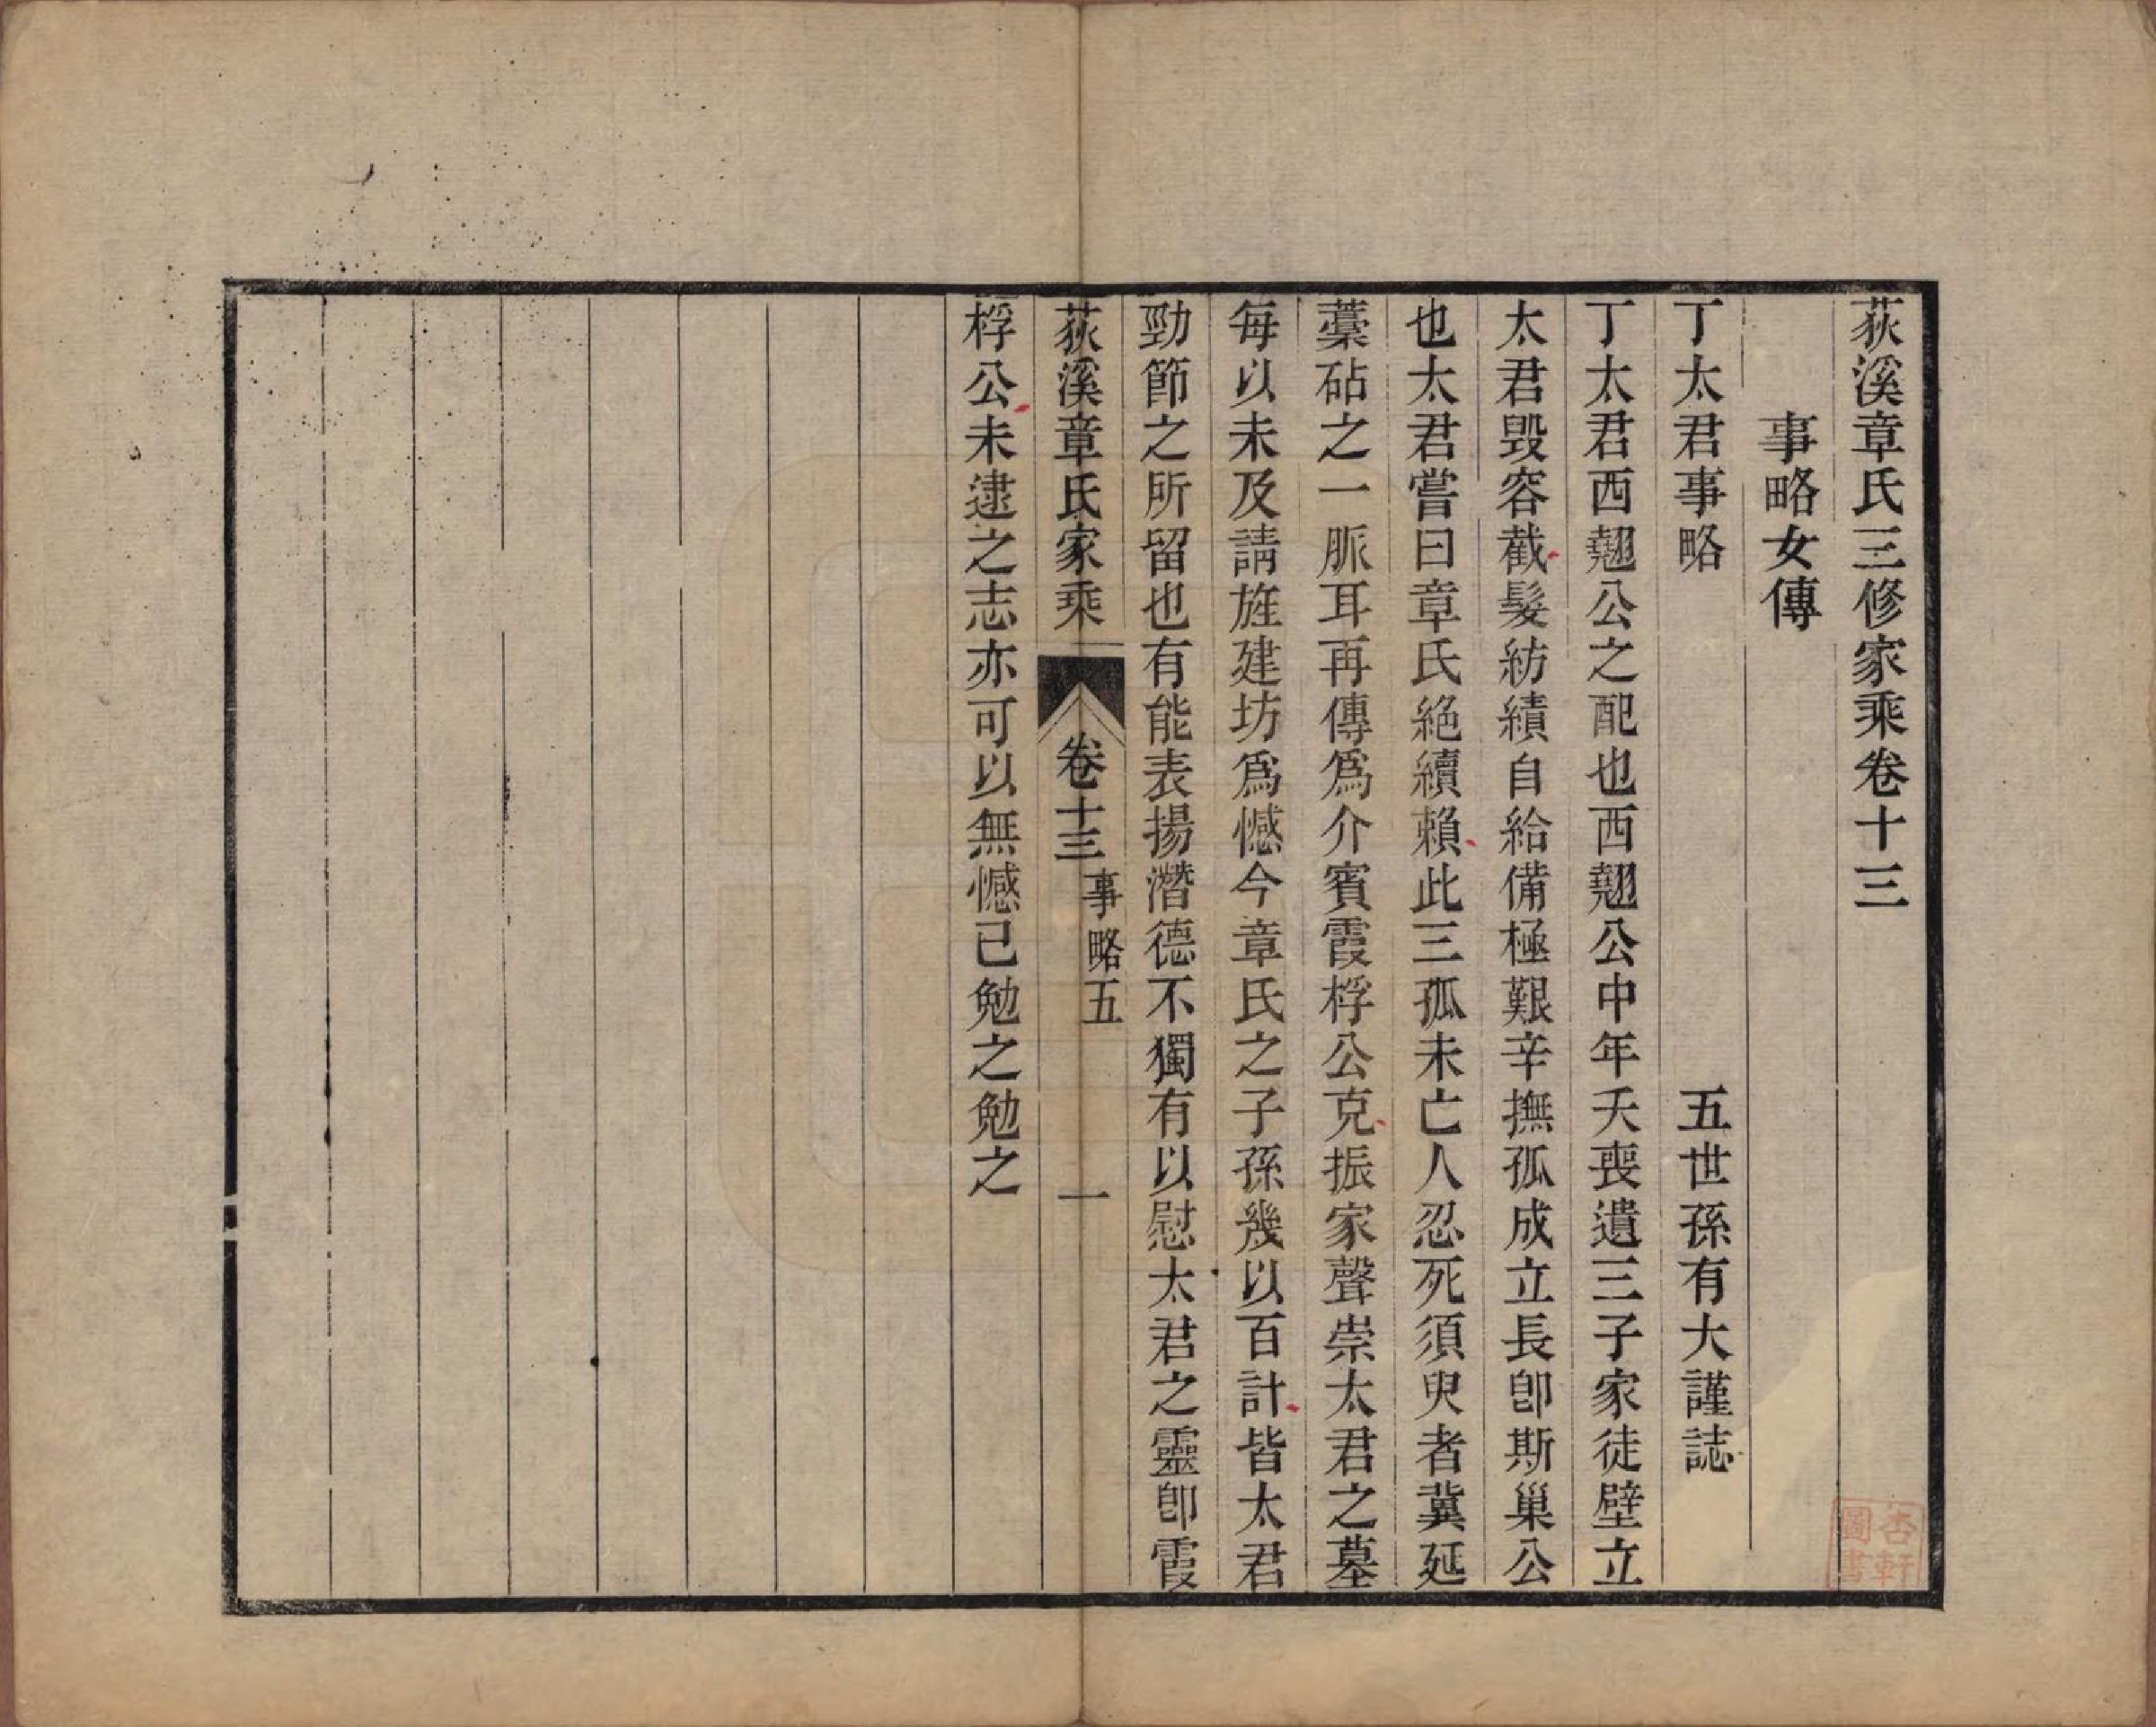 荻溪章氏三修家乘卷十三
事略女傳
丁太君事略　五世孫有大謹誌
丁太君西翹公之配也西翹公中年夭喪遺三子家徒壁立
太君毀容截髮紡績自給備極艱辛撫孤成立長卽斯巢公
也太君嘗曰章氏絕續賴此三孤未亡人忍死須臾者冀延
藁砧之一脈耳再傳爲介賓霞桴公克振家聲崇太君之墓
每以未及請旌建坊爲憾今章氏之子孫幾以百計皆太君
勁節之所留也有能表揚潛德不獨有以慰太君之靈卽霞
荻溪章氏家乘　卷十三　事略五　一
桴公未逮之志亦可以無憾已勉之勉之
杏軒
圖書